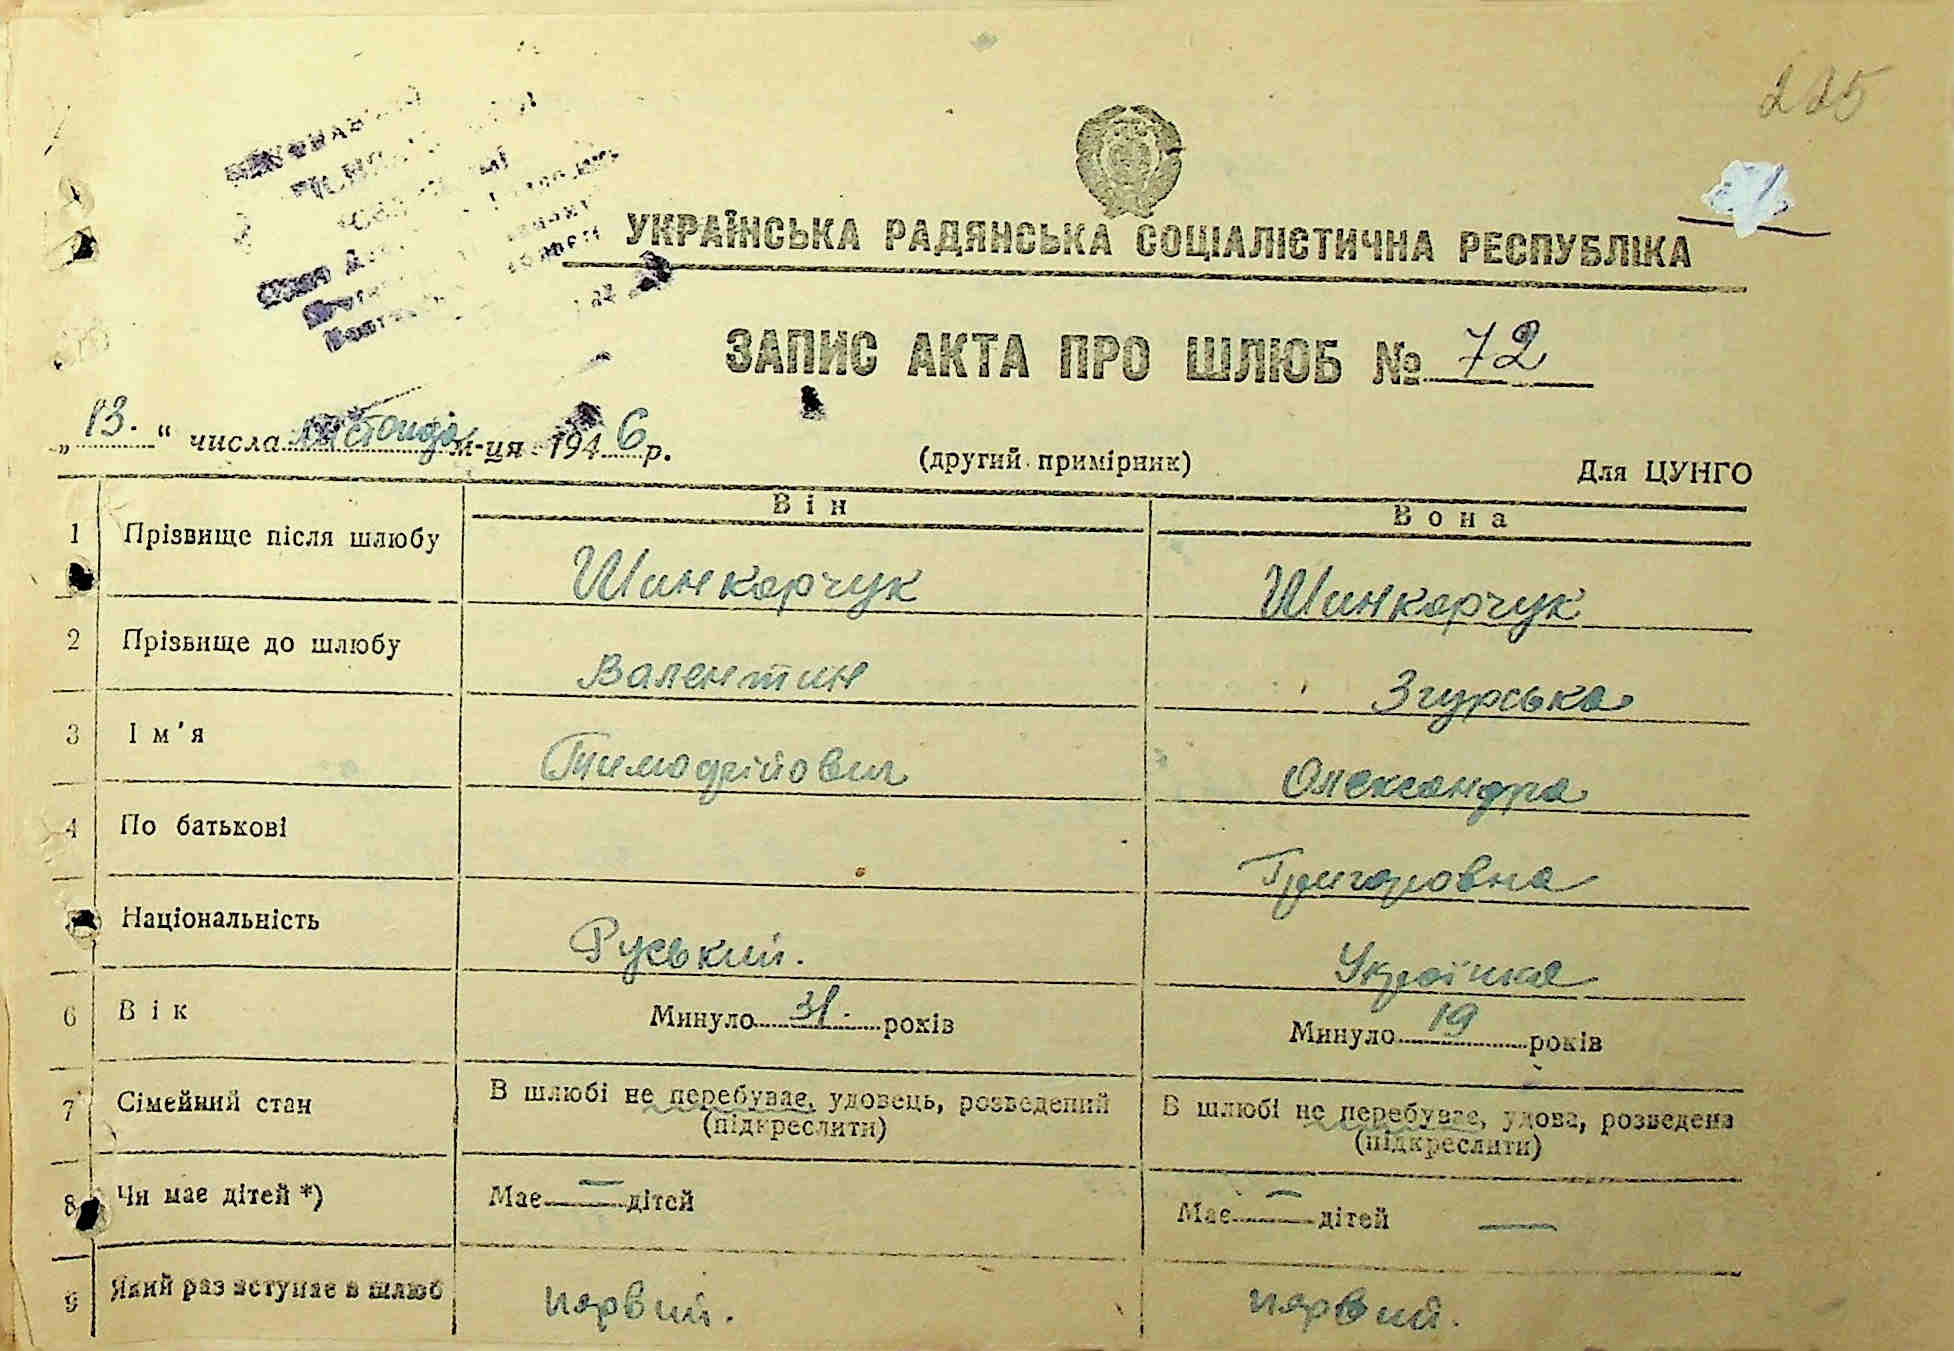 225
УКРАЇНСЬКА РАДЯНСЬКА СОЦІАЛІСТИЧНА РЕСПУБЛІКА
ЗАПИС АКТА ПРО ШЛЮБ № 72
„13.“ числа листопада м-ця 1946 р.
(другий примірник)
Для ЦУНГО
Він
Вона
1 Прізвище після шлюбу Шинкарчук Шинкарчук
2 Прізвище до шлюбу Валентин Згурська
3 Ім'я Тимофійович Олександра
4 По батькові Григоровна
Національність Руський. Українка
6 Вік Минуло 31. років Минуло 19 років
7 Сімейний стан В шлюбі не перебуває, удовець, розведений В шлюбі не перебуває, удова, розведена
(підкреслити) (підкреслити)
8 Чи має дітей *) Має — дітей Має — дітей —
9 Який раз вступає в шлюб первий. первий.